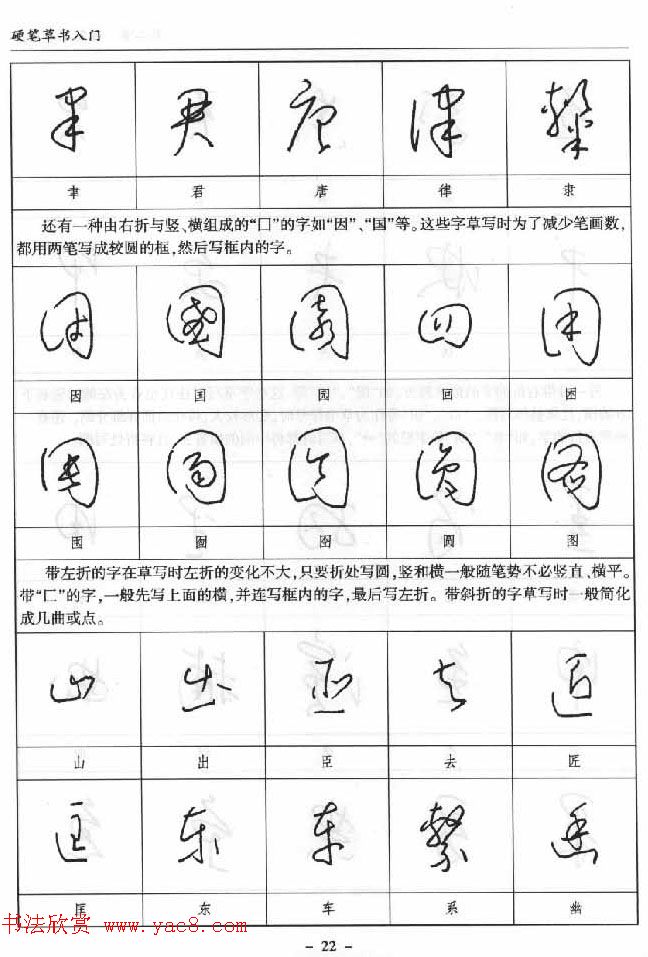 硬笔草书入门
聿 君 唐 律 隶
聿 君 唐 律 隶
还有一种由右折与竖、横组成的“囗”的字如“因”、“国”等。这些字草写时为了减少笔画数，
都用两笔写成较圆的框，然后写框内的字。
因 国 园 四 困
因 国 园 四 困
围 圆 图
围 圆 图
带左折的字在草写时左折的变化不大，只要折处写圆，竖和横一般随笔势不必竖直、横平。
带“匚”的字，一般先写上面的横，并连写框内的字，最后写左折。带斜折的字草写时一般简化
成几曲或点。
山 出 臣 去 匠
山 出 臣 去 匠
匡 东 车 繫 幽
匡 东 车 系 幽
书法欣赏 www.yac8.com
- 22 -